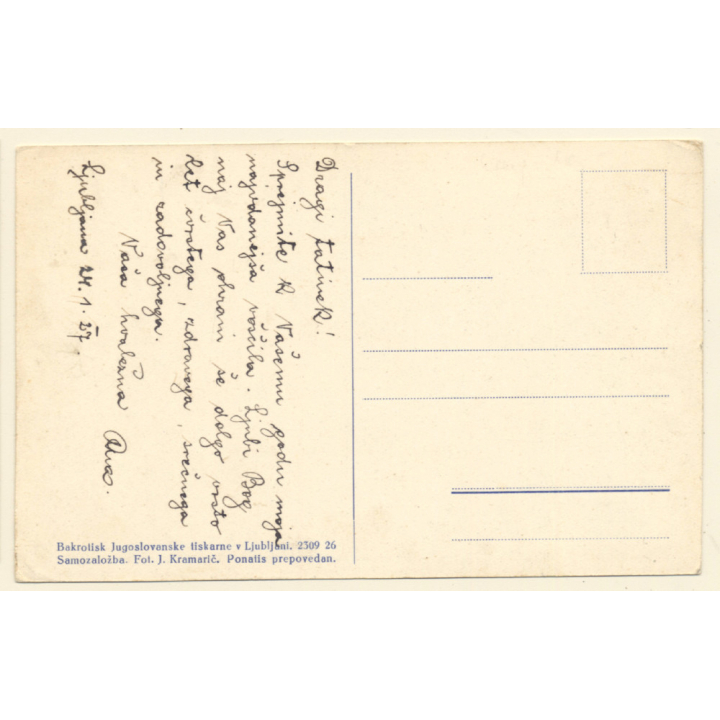 Dragi tatinek!
Sprejmite k Vašemu godu moja
najvdanejša voščila. Ljubi Bog
naj Vas ohrani še dolgo vrsto
let čvrstega, zdravega, srečnega
in zadovoljnega.
Vaša hvaležna
Ljubljana 24.1.37
Bakrotisk Jugoslovanske tiskarne v Ljubljani. 2309 26
Samozaložba. Fot. J. Kramarič. Ponatis prepovedan.